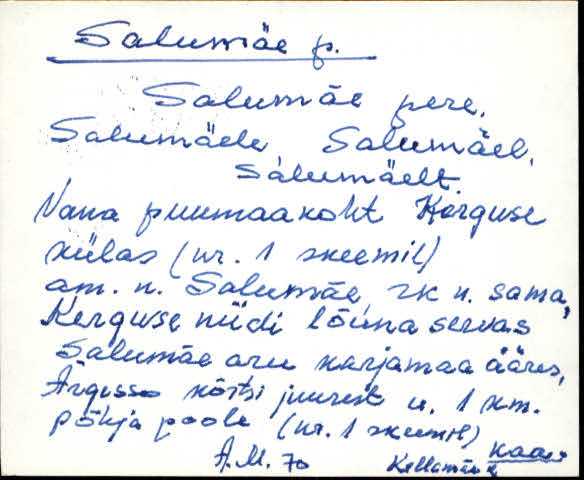 Salumäe p.
Salumäe pere,
Salumäele Salumäel,
Salumäelt.
Vana puumaakoht Kerguse
külas (nr. 1 skeemil)
am. n. Salumäe, rk n. sama,
Kerguse niidi lõuna servas
Salumäe aru karjamaa ääres,
Ärgesso kõrtsi juurest u. 1 km.
põhja poole (nr. 1 skeemil)
A.M. 70 Kellamäe